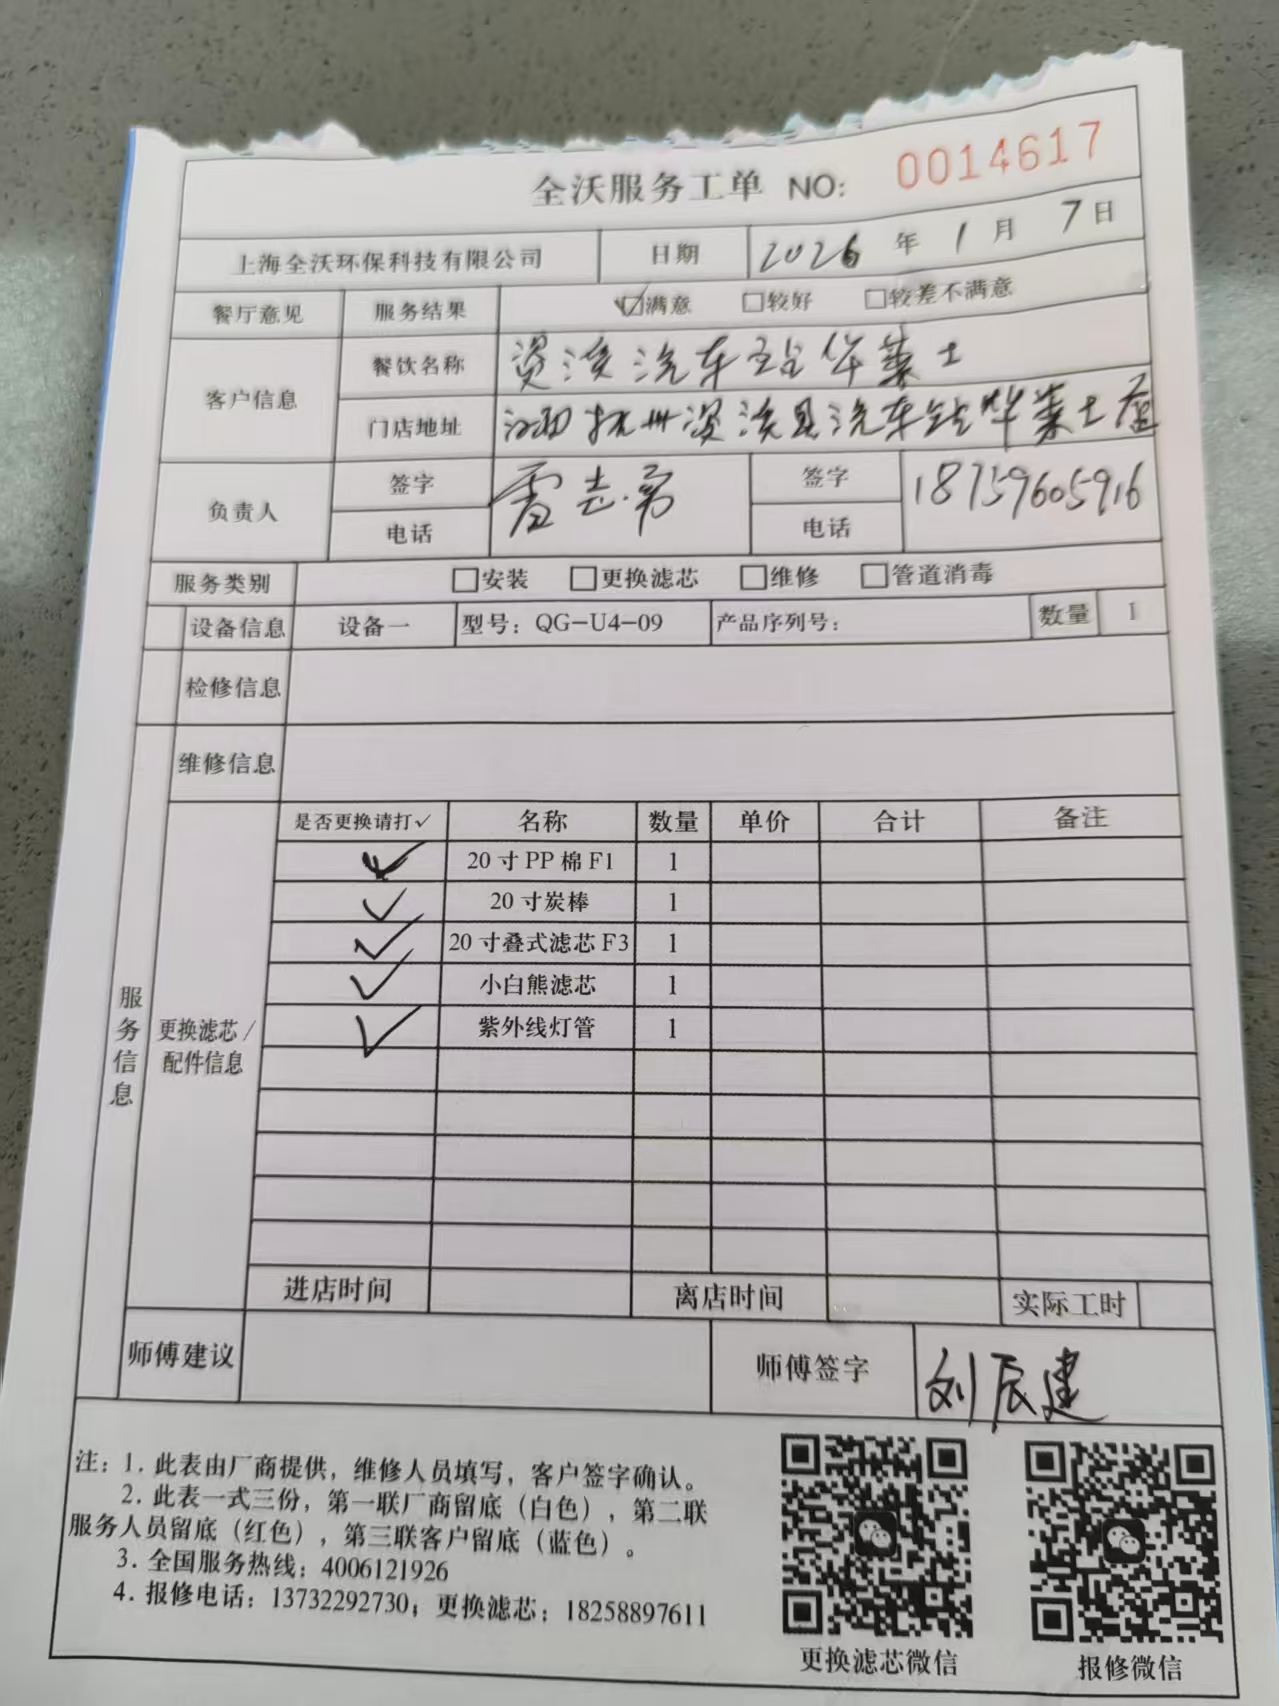 全沃服务工单 NO: 0014617
上海全沃环保科技有限公司 日期 2026年1月7日
餐厅意见 服务结果 ☑满意 □较好 □较差不满意
客户信息 餐饮名称 资溪汽车站华莱士
门店地址 资溪县汽车站华莱士店
负责人 签字 雷志勇 签字 18759605916
电话 电话
服务类别 □安装 □更换滤芯 □维修 □管道消毒
设备信息 设备一 型号：QG-U4-09 产品序列号： 数量 1
检修信息
维修信息
服务信息
更换滤芯/配件信息
是否更换请打✓ 名称 数量 单价 合计 备注
✓ 20寸PP棉F1 1
✓ 20寸炭棒 1
✓ 20寸叠式滤芯F3 1
✓ 小白熊滤芯 1
✓ 紫外线灯管 1
进店时间 离店时间 实际工时
师傅建议 师傅签字 刘辰建
注：1. 此表由厂商提供，维修人员填写，客户签字确认。
2. 此表一式三份，第一联厂商留底（白色），第二联
服务人员留底（红色），第三联客户留底（蓝色）。
3. 全国服务热线：4006121926
4. 报修电话：13732292730；更换滤芯：18258897611
更换滤芯微信 报修微信